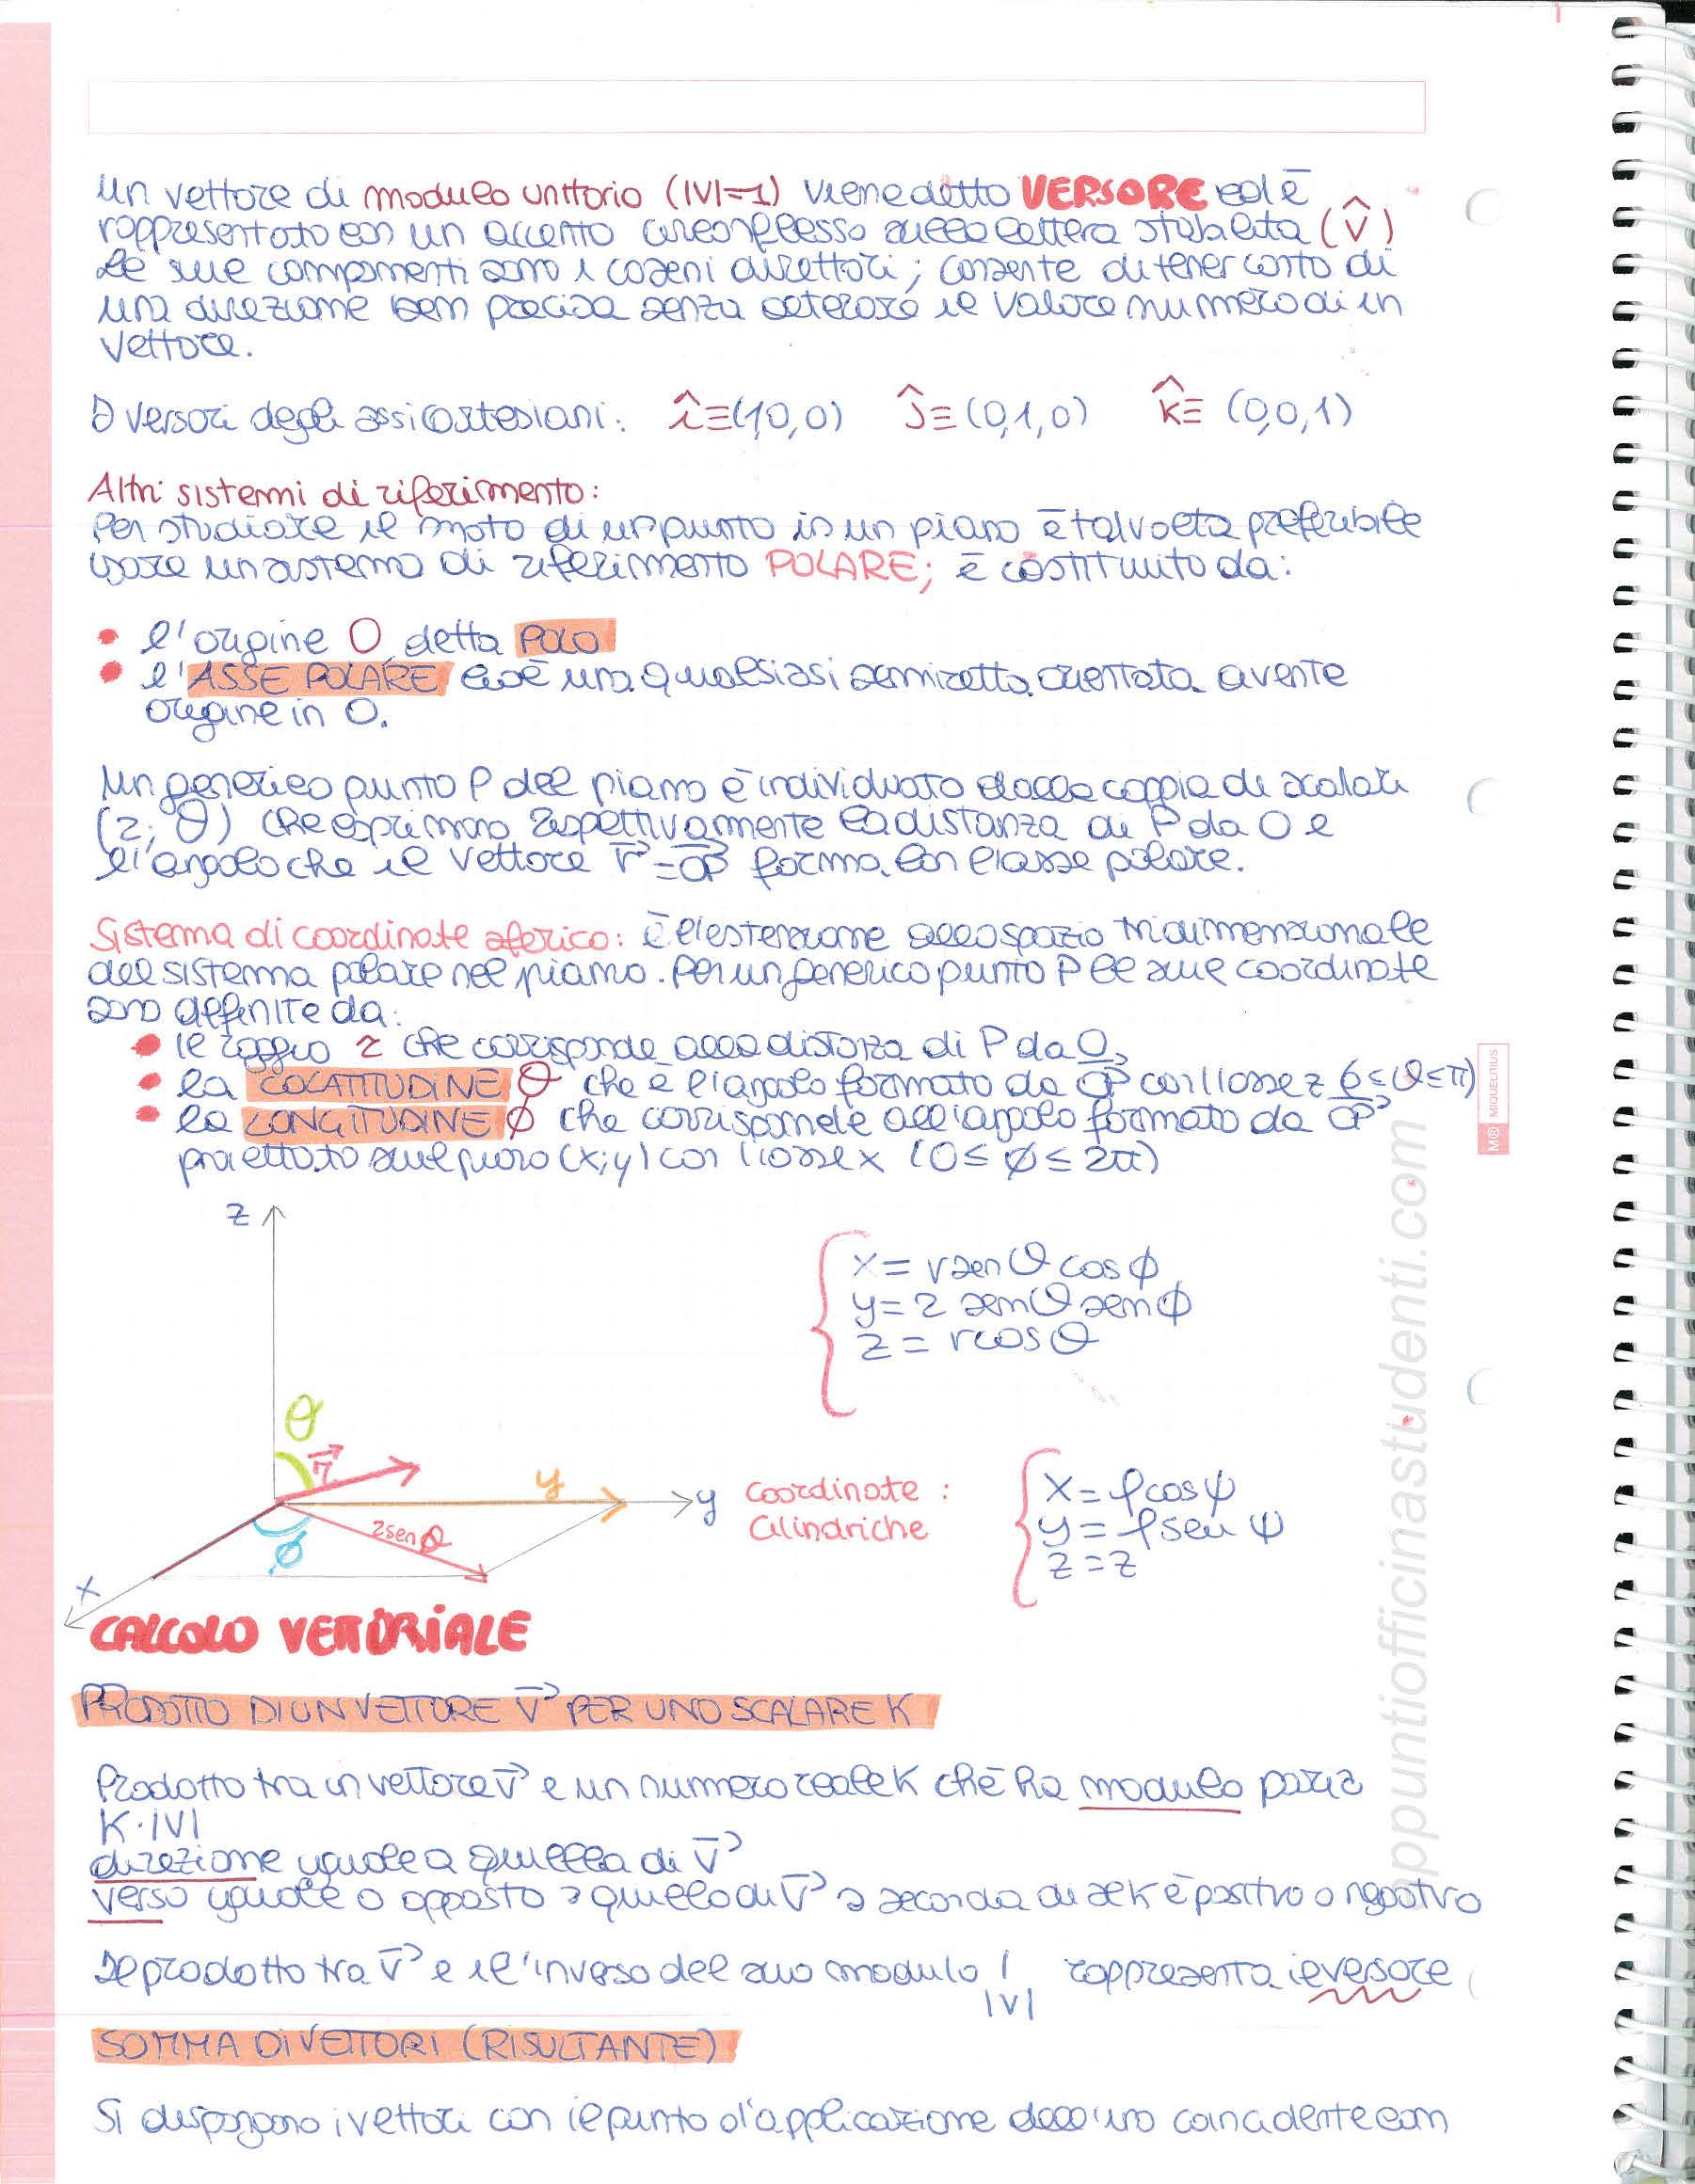 1
Un vettore di modulo unitario (|V|=1) viene detto VERSORE ed è
rappresentato con un accento circonflesso sulla lettera stabilita (v̂)
Le sue componenti sono i coseni direttori; consente di tener conto di
una direzione ben precisa senza alterare il valore numerico di un
vettore.
I versori degli assi cartesiani: î≡(1,0,0) ĵ≡(0,1,0) k̂≡(0,0,1)
Altri sistemi di riferimento:
Per studiare il moto di un punto in un piano è talvolta preferibile
usare un sistema di riferimento POLARE; è costituito da:
• l'origine O detta POLO
• l'ASSE POLARE cioè una qualsiasi semiretta orientata avente
origine in O.
Un generico punto P del piano è individuato dalla coppia di scalari
(r; θ) che esprimono rispettivamente la distanza di P da O e
l'angolo che il vettore r⃗=OP⃗ forma con l'asse polare.
Sistema di coordinate sferico: è l'estensione allo spazio tridimensionale
del sistema polare nel piano. Per un generico punto P le sue coordinate
sono definite da:
• il raggio r che corrisponde alla distanza di P da O,
• la COLATITUDINE θ che è l'angolo formato da OP⃗ con l'asse z 0≤θ≤π)
• la LONGITUDINE ϕ che corrisponde all'angolo formato da OP⃗
proiettato sul piano (x;y) con l'asse x (0≤ϕ≤2π)
z
x = r sen θ cos ϕ
y = r sen θ sen ϕ
z = r cos θ
θ
r⃗
y
y
r sen θ
ϕ
x
coordinate :
cilindriche
x = ρ cos ψ
y = ρ sen ψ
z = z
CALCOLO VETTORIALE
PRODOTTO DI UN VETTORE V⃗ PER UNO SCALARE K
Prodotto tra un vettore v⃗ e un numero reale K che ha modulo pari a
K·|V|
direzione uguale a quella di v⃗
verso uguale o opposto a quello di v⃗ a seconda di se K è positivo o negativo
Il prodotto tra v⃗ e il l'inverso del suo modulo 1/|V| rappresenta il versore
SOMMA DI VETTORI (RISULTANTE)
Si dispongono i vettori con il punto d'applicazione dell'uno coincidente con
M® MIQUELRIUS
appuntiofficinastudenti.com